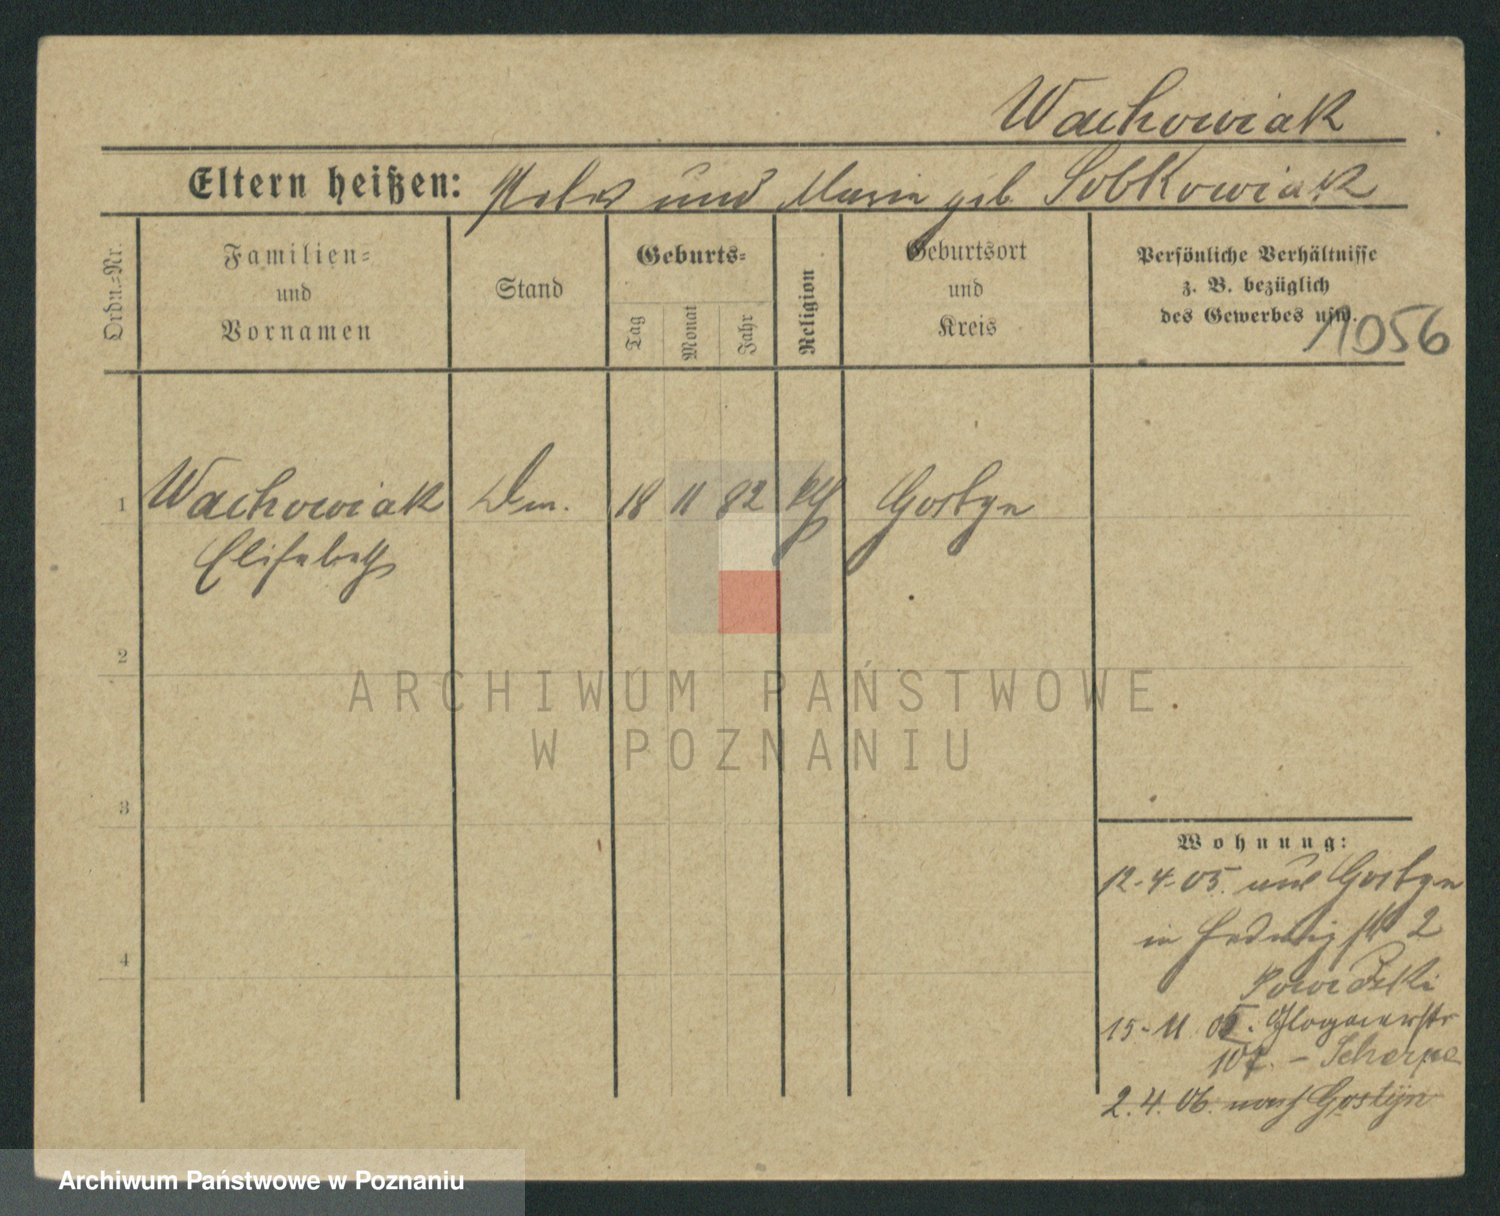 Wachowiak
Eltern heißen: Peter und Marie geb. Sobkowiak
Ordn.-Nr.
Familien-
und
Vornamen
Stand
Geburts-
Tag
Monat
Jahr
Religion
Geburtsort
und
Kreis
Persönliche Verhältnisse
z. B. bezüglich
des Gewerbes usw.
11056
1 Wachowiak Dm. 18 11 82 kth Gostyn
Elisabeth
2
3
4
ARCHIWUM PAŃSTWOWE
W POZNANIU
Wohnung:
12.4.05. aus Gostyn
in Hedwig str 2
15.11.05. Glogauerstr
107. – Scherpe
2.4.06. nach Gostyn
Archiwum Państwowe w Poznaniu